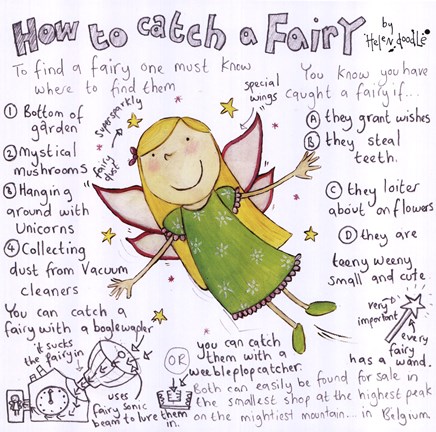 How to catch a Fairy
by Helen doodle
To find a fairy one must know
where to find them
① Bottom of
garden
② Mystical
mushrooms
③ Hanging
around with
Unicorns
④ Collecting
dust from Vacuum
cleaners
supersparkly
fairy
dust
special
wings
You know you have
caught a fairy if...
Ⓐ they grant wishes
Ⓑ they steal
teeth.
Ⓒ they loiter
about on flowers
Ⓓ they are
teeny weeny
small and cute.
very
important
every
fairy
has a wand.
You can catch a
fairy with a
it sucks
the fairy in
uses
fairy sonic
beam to lure them
in.
OR
you can catch
them with a
weebleplopcatcher.
Both can easily be found for sale in
the smallest shop at the highest peak
on the mightiest mountain... in Belgium